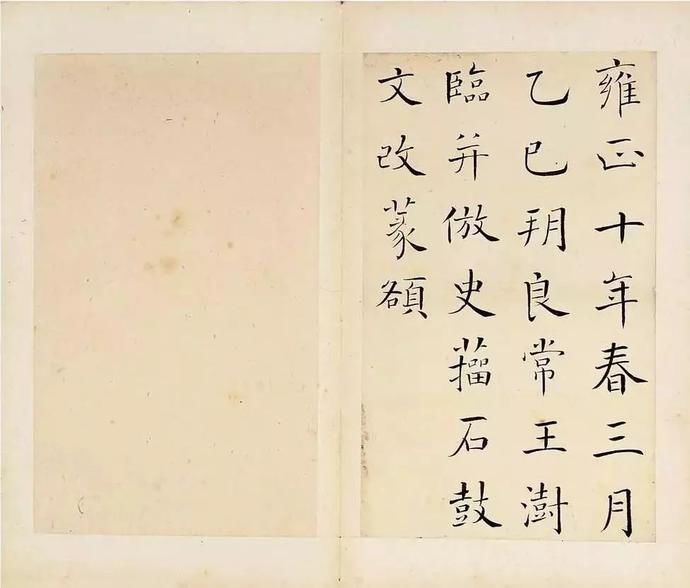 雍正十年春三月
乙巳朔良常王澍
臨并倣史籀石鼓
文改篆額